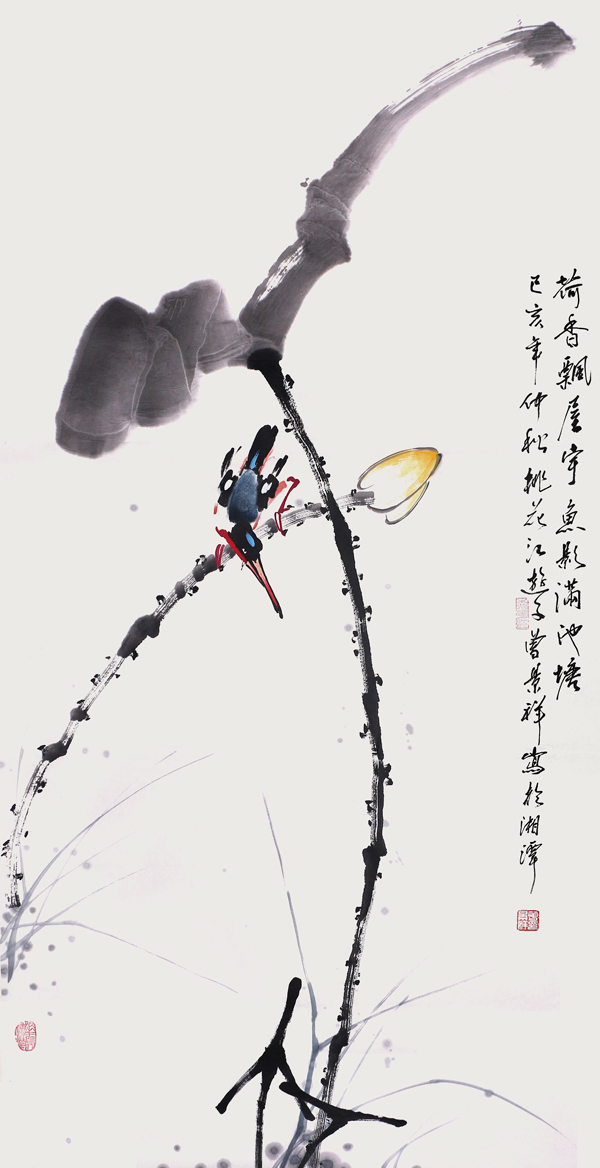 荷香飄屋宇魚影滿池塘
己亥年仲秋桃花江遊子曾景祥寫於湘潭